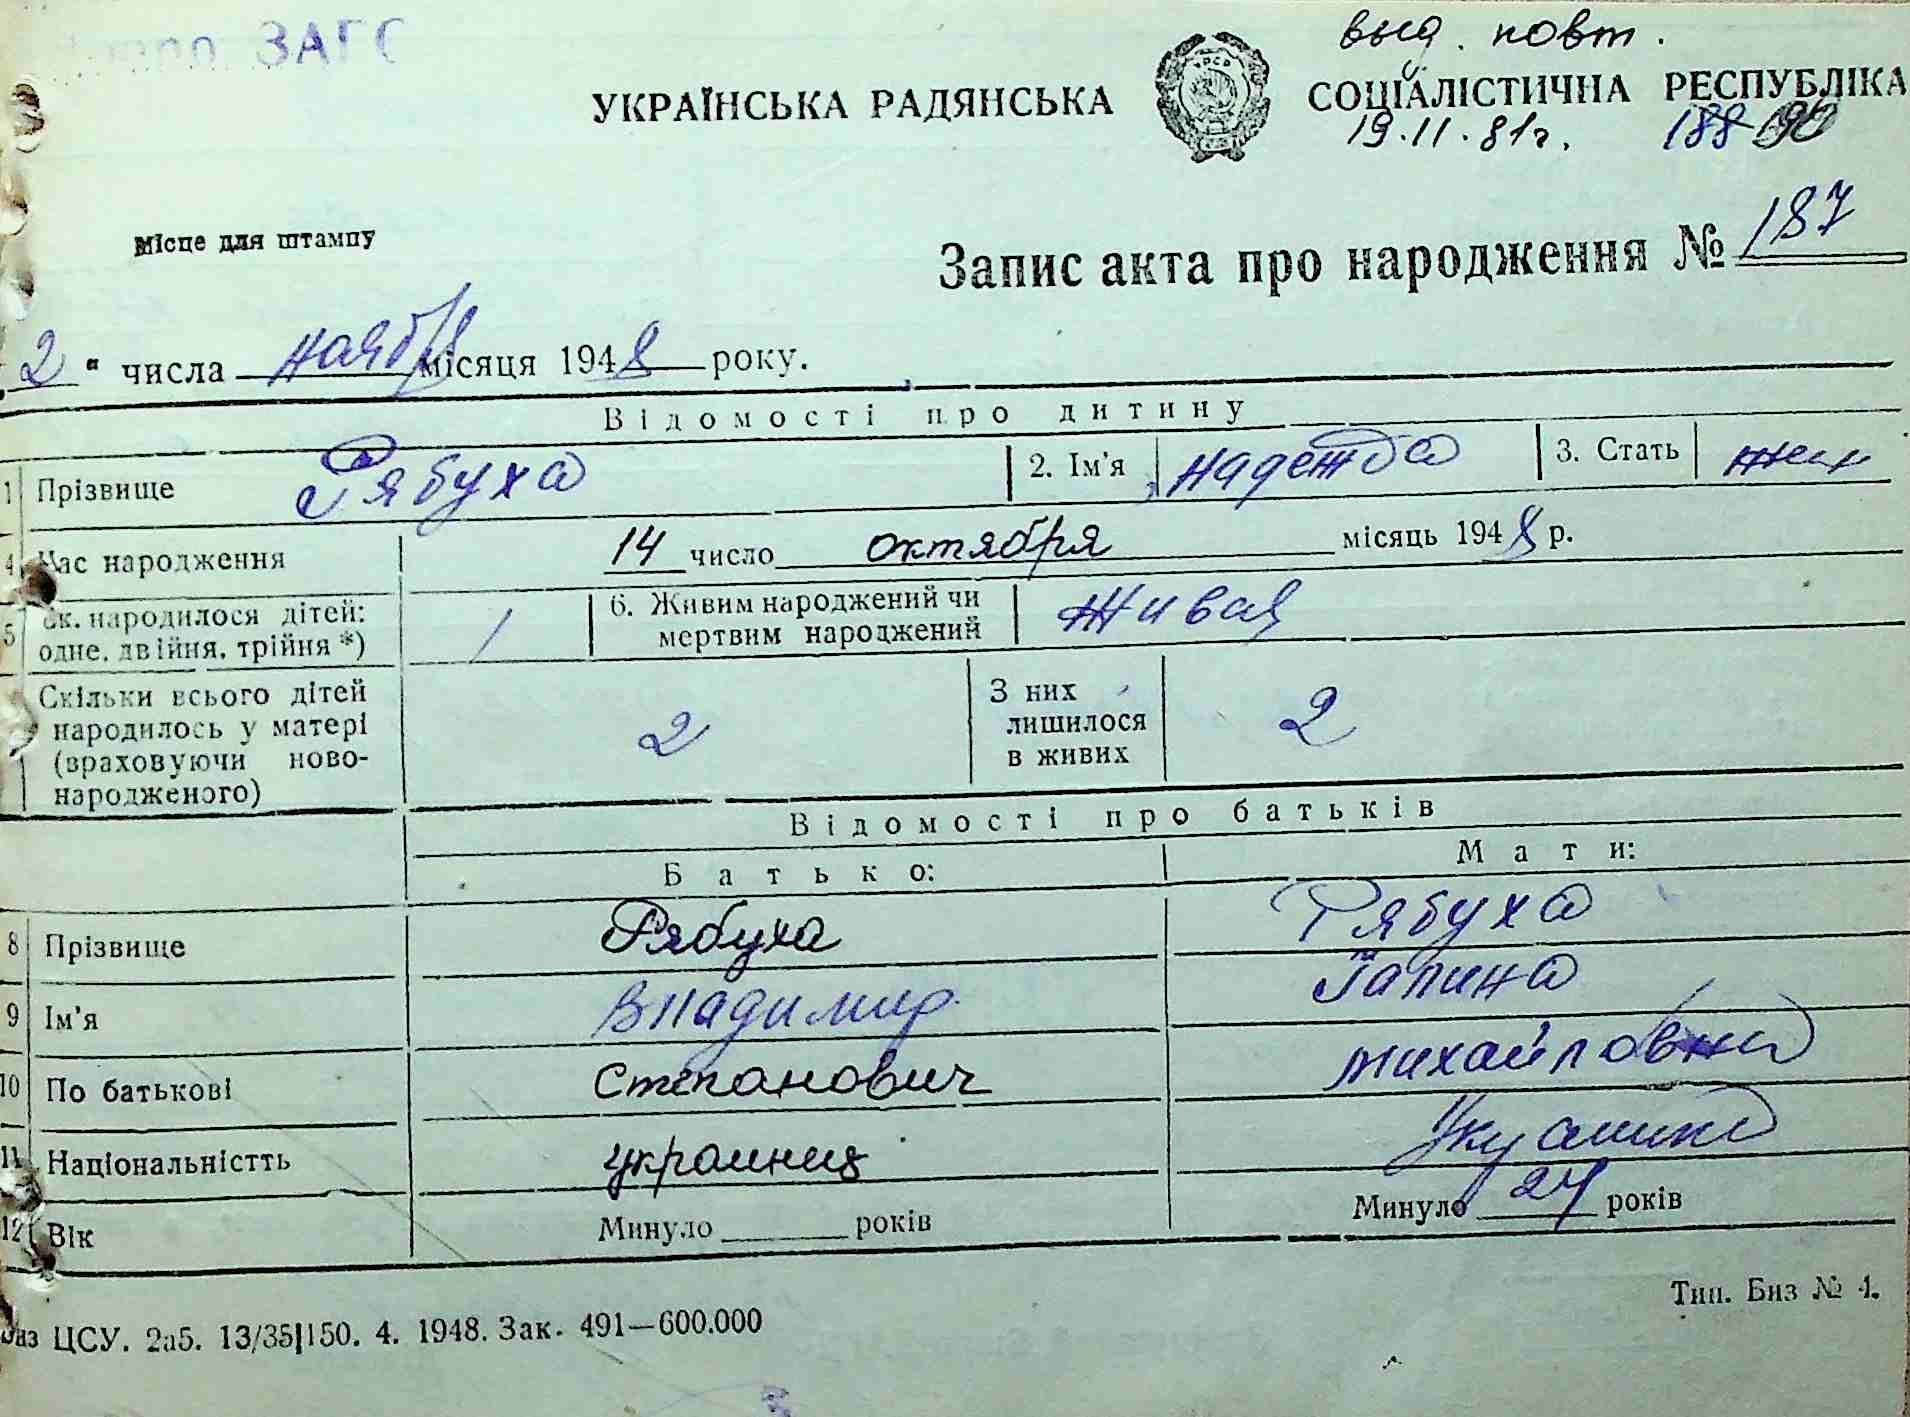 ЗАГС
выд. повт.
УКРАЇНСЬКА РАДЯНСЬКА СОЦІАЛІСТИЧНА РЕСПУБЛІКА
19.11.81г. 188
Місце для штампу
Запис акта про народження № 187
2 " числа ноября місяця 1948 року.
Відомості про дитину
1 Прізвище Рябуха 2. Ім'я Надежда 3. Стать жен
4 Час народження 14 число октября місяць 1948 р.
5 Ск. народилося дітей: одне, двійня, трійня *) 1 6. Живим народжений чи мертвим народжений Живая
Скільки всього дітей народилось у матері (враховуючи ново-народженого) 2 З них лишилося в живих 2
Відомості про батьків
Батько: Мати:
8 Прізвище Рябуха Рябуха
9 Ім'я Владимир Галина
10 По батькові Степанович Михайловна
11 Національністть украинец
12 Вік Минуло ____ років Минуло 24 років
Тип. Биз № 4.
ЦСУ. 2а5. 13/35|150. 4. 1948. Зак. 491—600.000